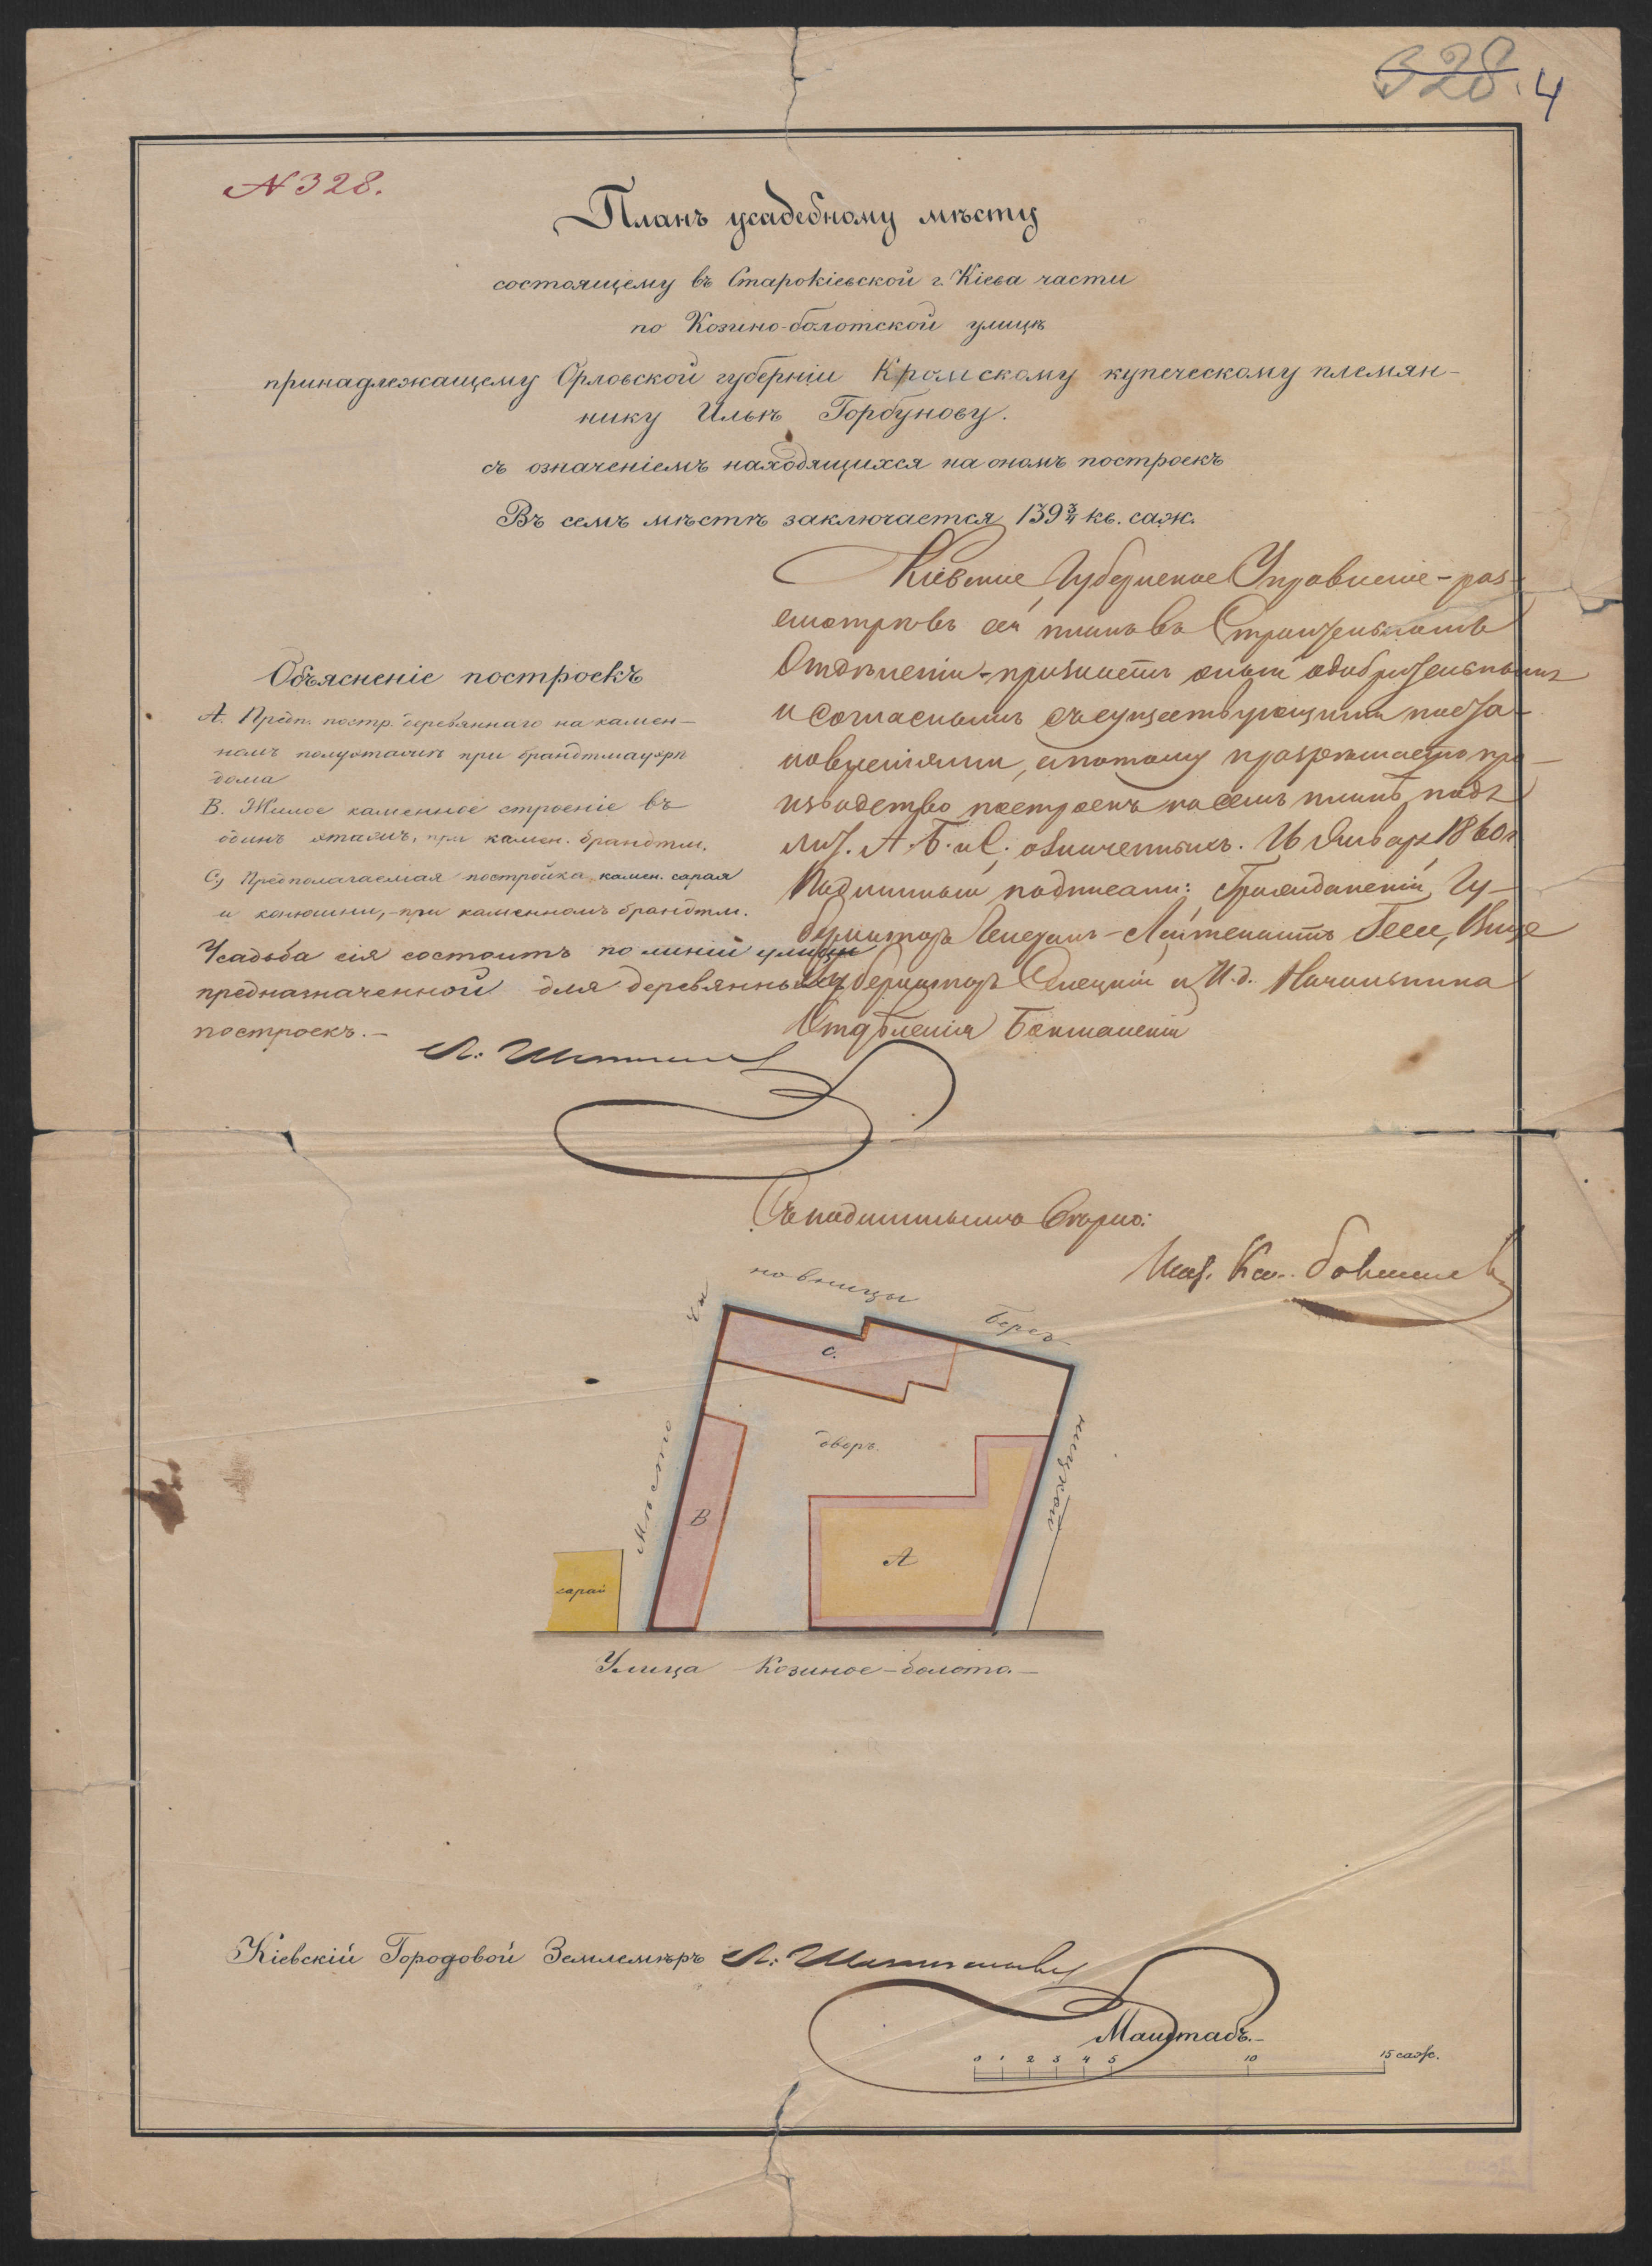 328. 4
N 328.
Планъ усадебному мѣсту
состоящему въ Старокіевской г. Кіева части
по Козино-болотской улицѣ
принадлежащему Орловской губерніи Кромскому купеческому племян-
нику Ильѣ Горбунову.
съ означеніемъ находящихся на ономъ построекъ
Въ семъ мѣстѣ заключается 139 3/4 кв. саж.
Кіевское Губернское Управленіе - раз-
смотрѣвъ сей планъ въ Строительномъ
Отдѣленіи - признаетъ оный одобрительнымъ
и согласнымъ съ существующими поста-
новленіями, а потому разрѣшаетъ про-
изводство построекъ на семъ планѣ подъ
лит. А. Б. и С. означенныхъ. 16 Января 1860 г.
Подлинный подписали: Гражданскій Гу-
бернаторъ Генералъ-Лейтенантъ Гессе, Вице
Губернаторъ Селецкій и И.д. Начальника
Отдѣленія
Объясненіе построекъ
А. Предп. постр. деревяннаго на камен-
номъ полуэтажѣ при брандтмауерѣ
дома
В. Жилое каменное строеніе въ
одинъ этажъ, при камен. брандтм.
С, Предполагаемая постройка камен. сарая
и конюшни, - при каменномъ брандтм.
Усадьба сія состоитъ по линіи улицы
предназначенной для деревянныхъ
построекъ. -
Съ подлиннымъ вѣрно:
Мѣсто
Чи
новницы
Берез
ницкой
С.
дворъ.
В
А
сарай
Улица Козиное-болото. -
Кіевскій Городовой Землемѣръ
Маштабъ. -
0 1 2 3 4 5 10 15 саж.